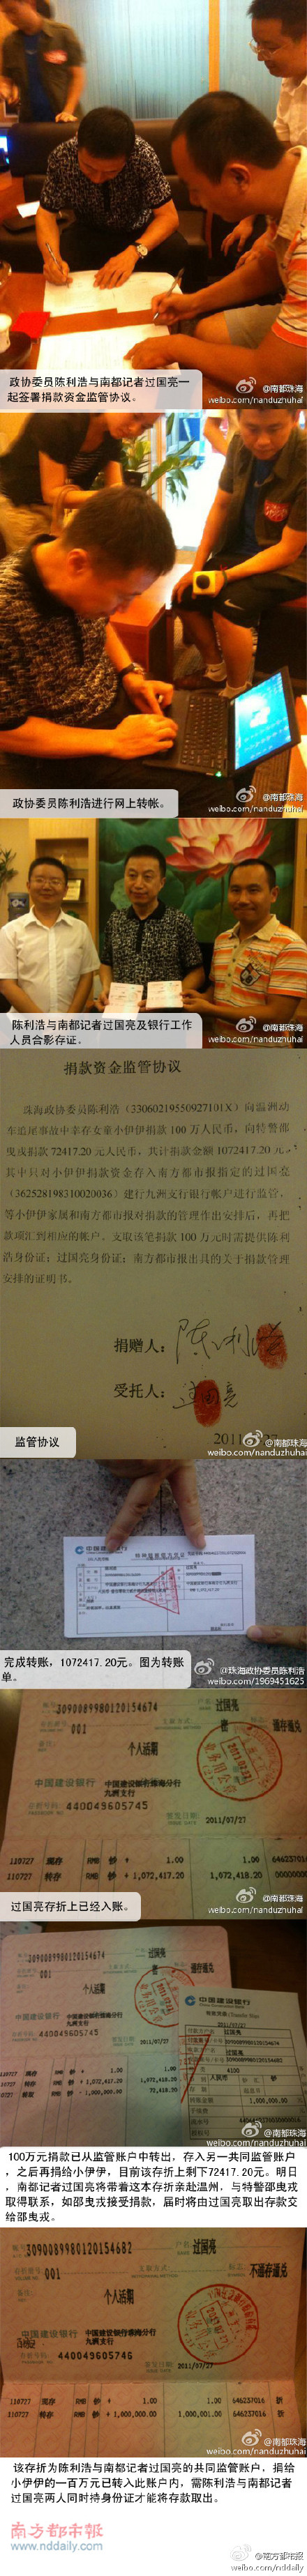 政协委员陈利浩与南都记者过国亮一
起签署捐款资金监管协议。
@南都珠海
weibo.com/nanduzhuhai
政协委员陈利浩进行网上转帐。
@南都珠海
weibo.com/nanduzhuhai
陈利浩与南都记者过国亮及银行工作
人员合影存证。
@南都珠海
weibo.com/nanduzhuhai
捐款资金监管协议
珠海政协委员陈利浩（33060219550927101X）向温洲动
车追尾事故中幸存女童小伊伊捐款 100 万人民币，向特警邵
曳戎捐款 72417.20 元人民币，共计捐款金额 1072417.20 元。
其中只对小伊伊捐款资金存入南方都市报指定的过国亮
（362528198310020036）建行九洲支行银帐户进行监管，
等小伊伊家属和南方都市报对捐款的管理作出安排后，再把
款项汇到相应的帐户。支取该笔捐款 100 万元时需提供陈利
浩身份证；过国亮身份证；南方都市报出具的关于捐款管理
安排的证明书。
捐赠人：陈利浩
受托人：过国亮
监管协议
@南都珠海
weibo.com/nanduzhuhai
中国建设银行
完成转账，1072417.20元。图为转账
单。
@珠海政协委员陈利浩
weibo.com/1969451625
3090089980120154674
过国亮
001
密
通存通兑
个人活期
中国建设银行
中国建设银行珠海分行
九洲支行
440049605745
签发日期：
2011/07/27
110727 现存 RMB 钞 + 1.00 1.00 646237016
110727 转存 RMB 钞 + 1,072,417.20 1,072,418.20
过国亮存折上已经入账。
@南都珠海
weibo.com/nanduzhuhai
3090089980120154674
过国亮
001
通存通兑
个人活期
中国建设银行
440049605745
2011/07/27
中国建设银行
@南都珠海
weibo.com/nanduzhuhai
100万元捐款已从监管账户中转出，存入另一共同监管账户
，之后再捐给小伊伊，目前该存折上剩下72417.20元。明日
，南都记者过国亮将带着这本存折亲赴温州，与特警邵曳戎
取得联系，如邵曳戎接受捐款，届时将由过国亮取出存款交
给邵曳戎。
3090089980120154682
过国亮
001
不通存通兑
个人活期
中国建设银行
中国建设银行珠海分行
九洲支行
440049605746
2011/07/27
110727 现存 RMB 钞 + 1.00 1.00 646237016 折
110727 转存 RMB 钞 + 1,000,000.00 1,000,001.00 646237016 折
@南都珠海
weibo.com/nanduzhuhai
该存折为陈利浩与南都记者过国亮的共同监管账户，捐给
小伊伊的一百万元已转入此账户内，需陈利浩与南都记者
过国亮两人同时持身份证才能将存款取出。
南方都市报
www.nddaily.com
@南方都市报
weibo.com/nddaily